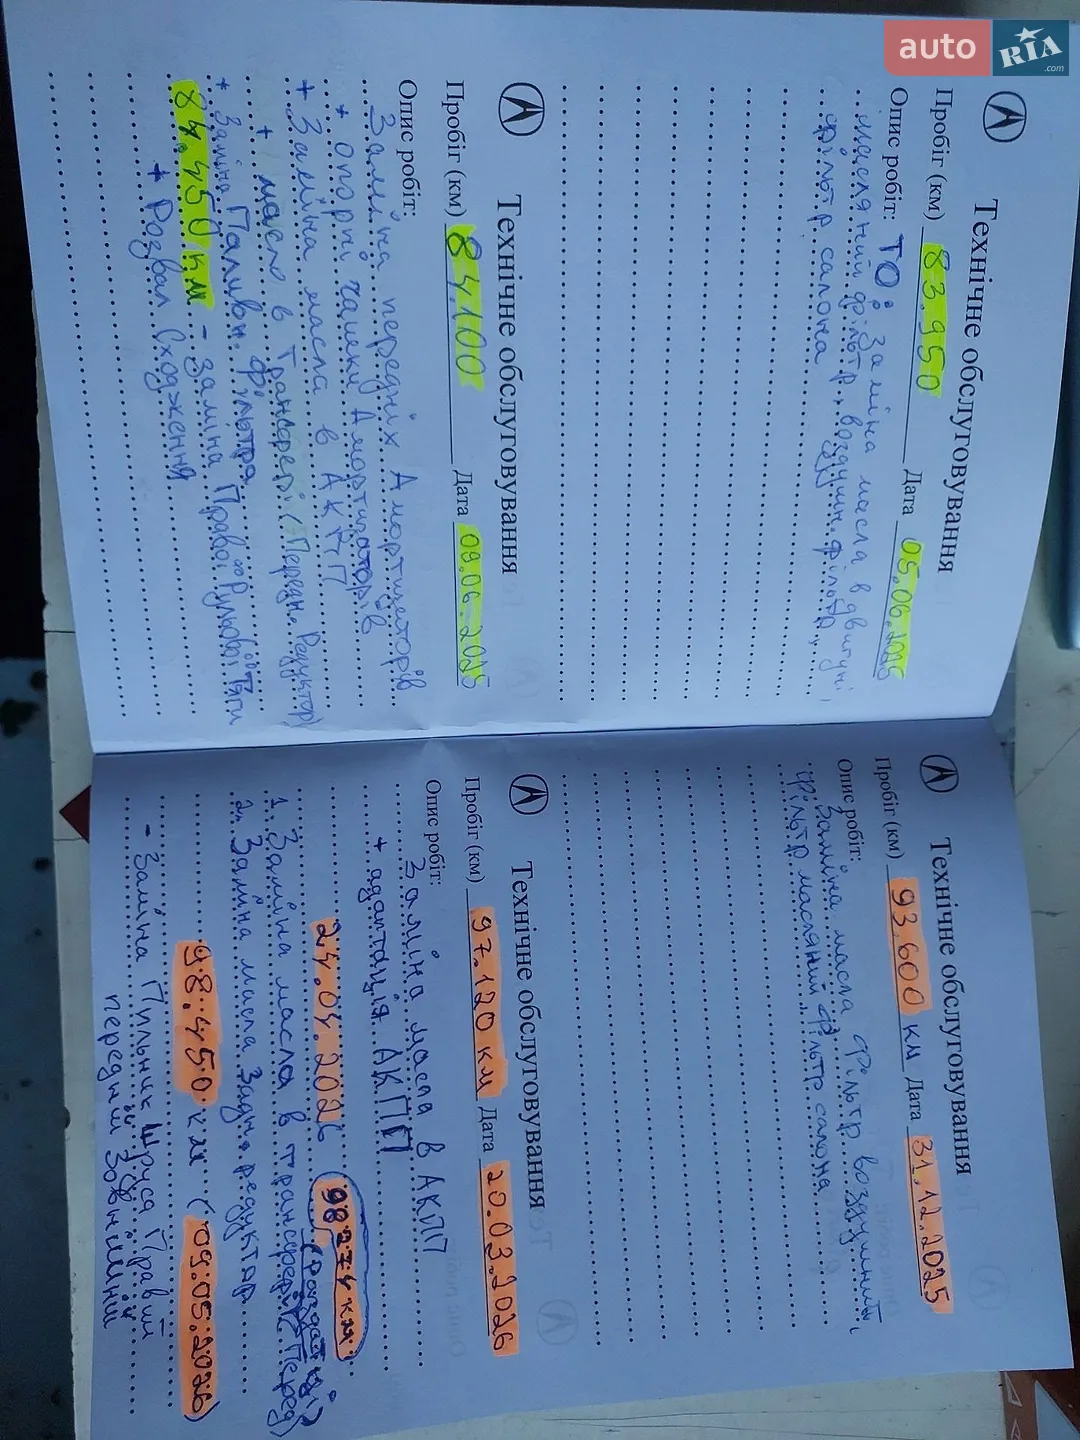 auto RIA.com
Технічне обслуговування
Пробіг (км) 83.950 Дата 05.06.2025
Опис робіт: ТО: заміна масла в двигуні,
масляний фільтр, воздушн. фільтр,
фільтр салона
Технічне обслуговування
Пробіг (км) 84.100 Дата 09.06.2025
Опис робіт:
Заміна передніх Амортизаторів
+ опорні чашки Амортизаторів
+ Заміна масла в АКПП
+ масло в Трансфері (Передн. Редуктор)
+ Заміна Паливн. Фільтра
84.450 км - заміна Правої Рульової Тяги
+ Розвал Сходження
Технічне обслуговування
Пробіг (км) 93600 км Дата 31.12.2025
Опис робіт:
Заміна масла фільтр воздушний,
фільтр масляний фільтр салона
Технічне обслуговування
Пробіг (км) 97.120 км Дата 20.03.2026
Опис робіт:
Заміна масла в АКПП
+ адаптація АКПП
24.04.2026 98274 км
1. Заміна масла в трансфері Перед)
2. Заміна масла Задн. редуктор
98.450 км (09.05.2026)
- Заміна Пильник Шруса Правий
передній Зовнішній